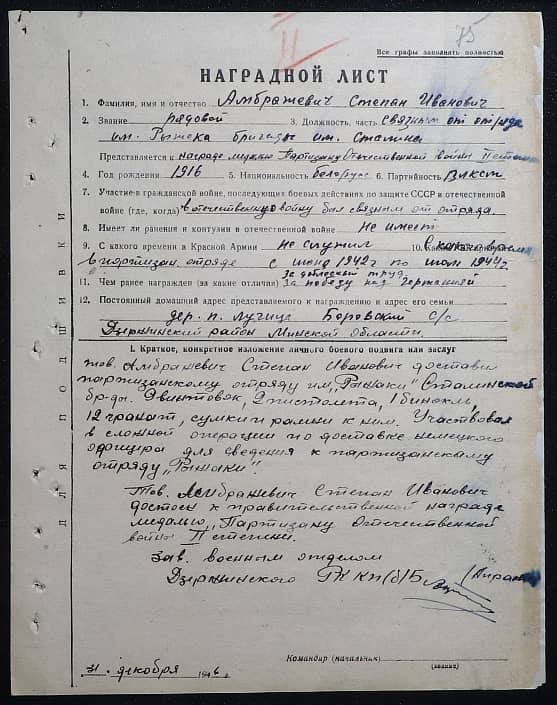 75
II
Все графы заполнять полностью
НАГРАДНОЙ ЛИСТ
1. Фамилия, имя и отчество Амбражевич Степан Иванович
2. Звание рядовой 3. Должность, часть связным от отряда
им. Рыжака бригады им. Сталина
Представляется к награде медалью Партизану Отечественной войны II степени
4. Год рождения 1916 5. Национальность белорусс 6. Партийность ВЛКСМ
7. Участие в гражданской войне, последующих боевых действиях по защите СССР и отечественной
войне (где, когда) в отечественную войну был связным от отряда.
8. Имеет ли ранения и контузии в отечественной войне Не имеет
9. С какого времени в Красной Армии не служил 10.
в партизан. отряде с июня 1942 г по июль 1944 г.
За доблестный труд
11. Чем ранее награжден (за какие отличия) За победу над Германией
12. Постоянный домашний адрес представляемого к награждению и адрес его семьи
дер. п. Лучица Боровский с/с
Дзержинский район Минской области.
ДЛЯ ПОДШИВКИ
I. Краткое, конкретное изложение личного боевого подвига или заслуг
тов. Амбражевич Степан Иванович доставил
партизанскому отряду им. Сталинской
бр-ды. винтовок, 2 пистолета, 1 бинокль,
12 гранат, сумки и ремни к ним. Участвовал
в сложной операции по доставке немецкого
офицера для сведения к партизанскому
отряду
Тов. Амбражевич Степан Иванович
достоен к правительственной награде
медалью „Партизану Отечественной
войны II степени.
Зав. военным отделом
Дзержинского РК КП(б)Б
Командир (начальник)
(звание)
31. декабря 1946 г.